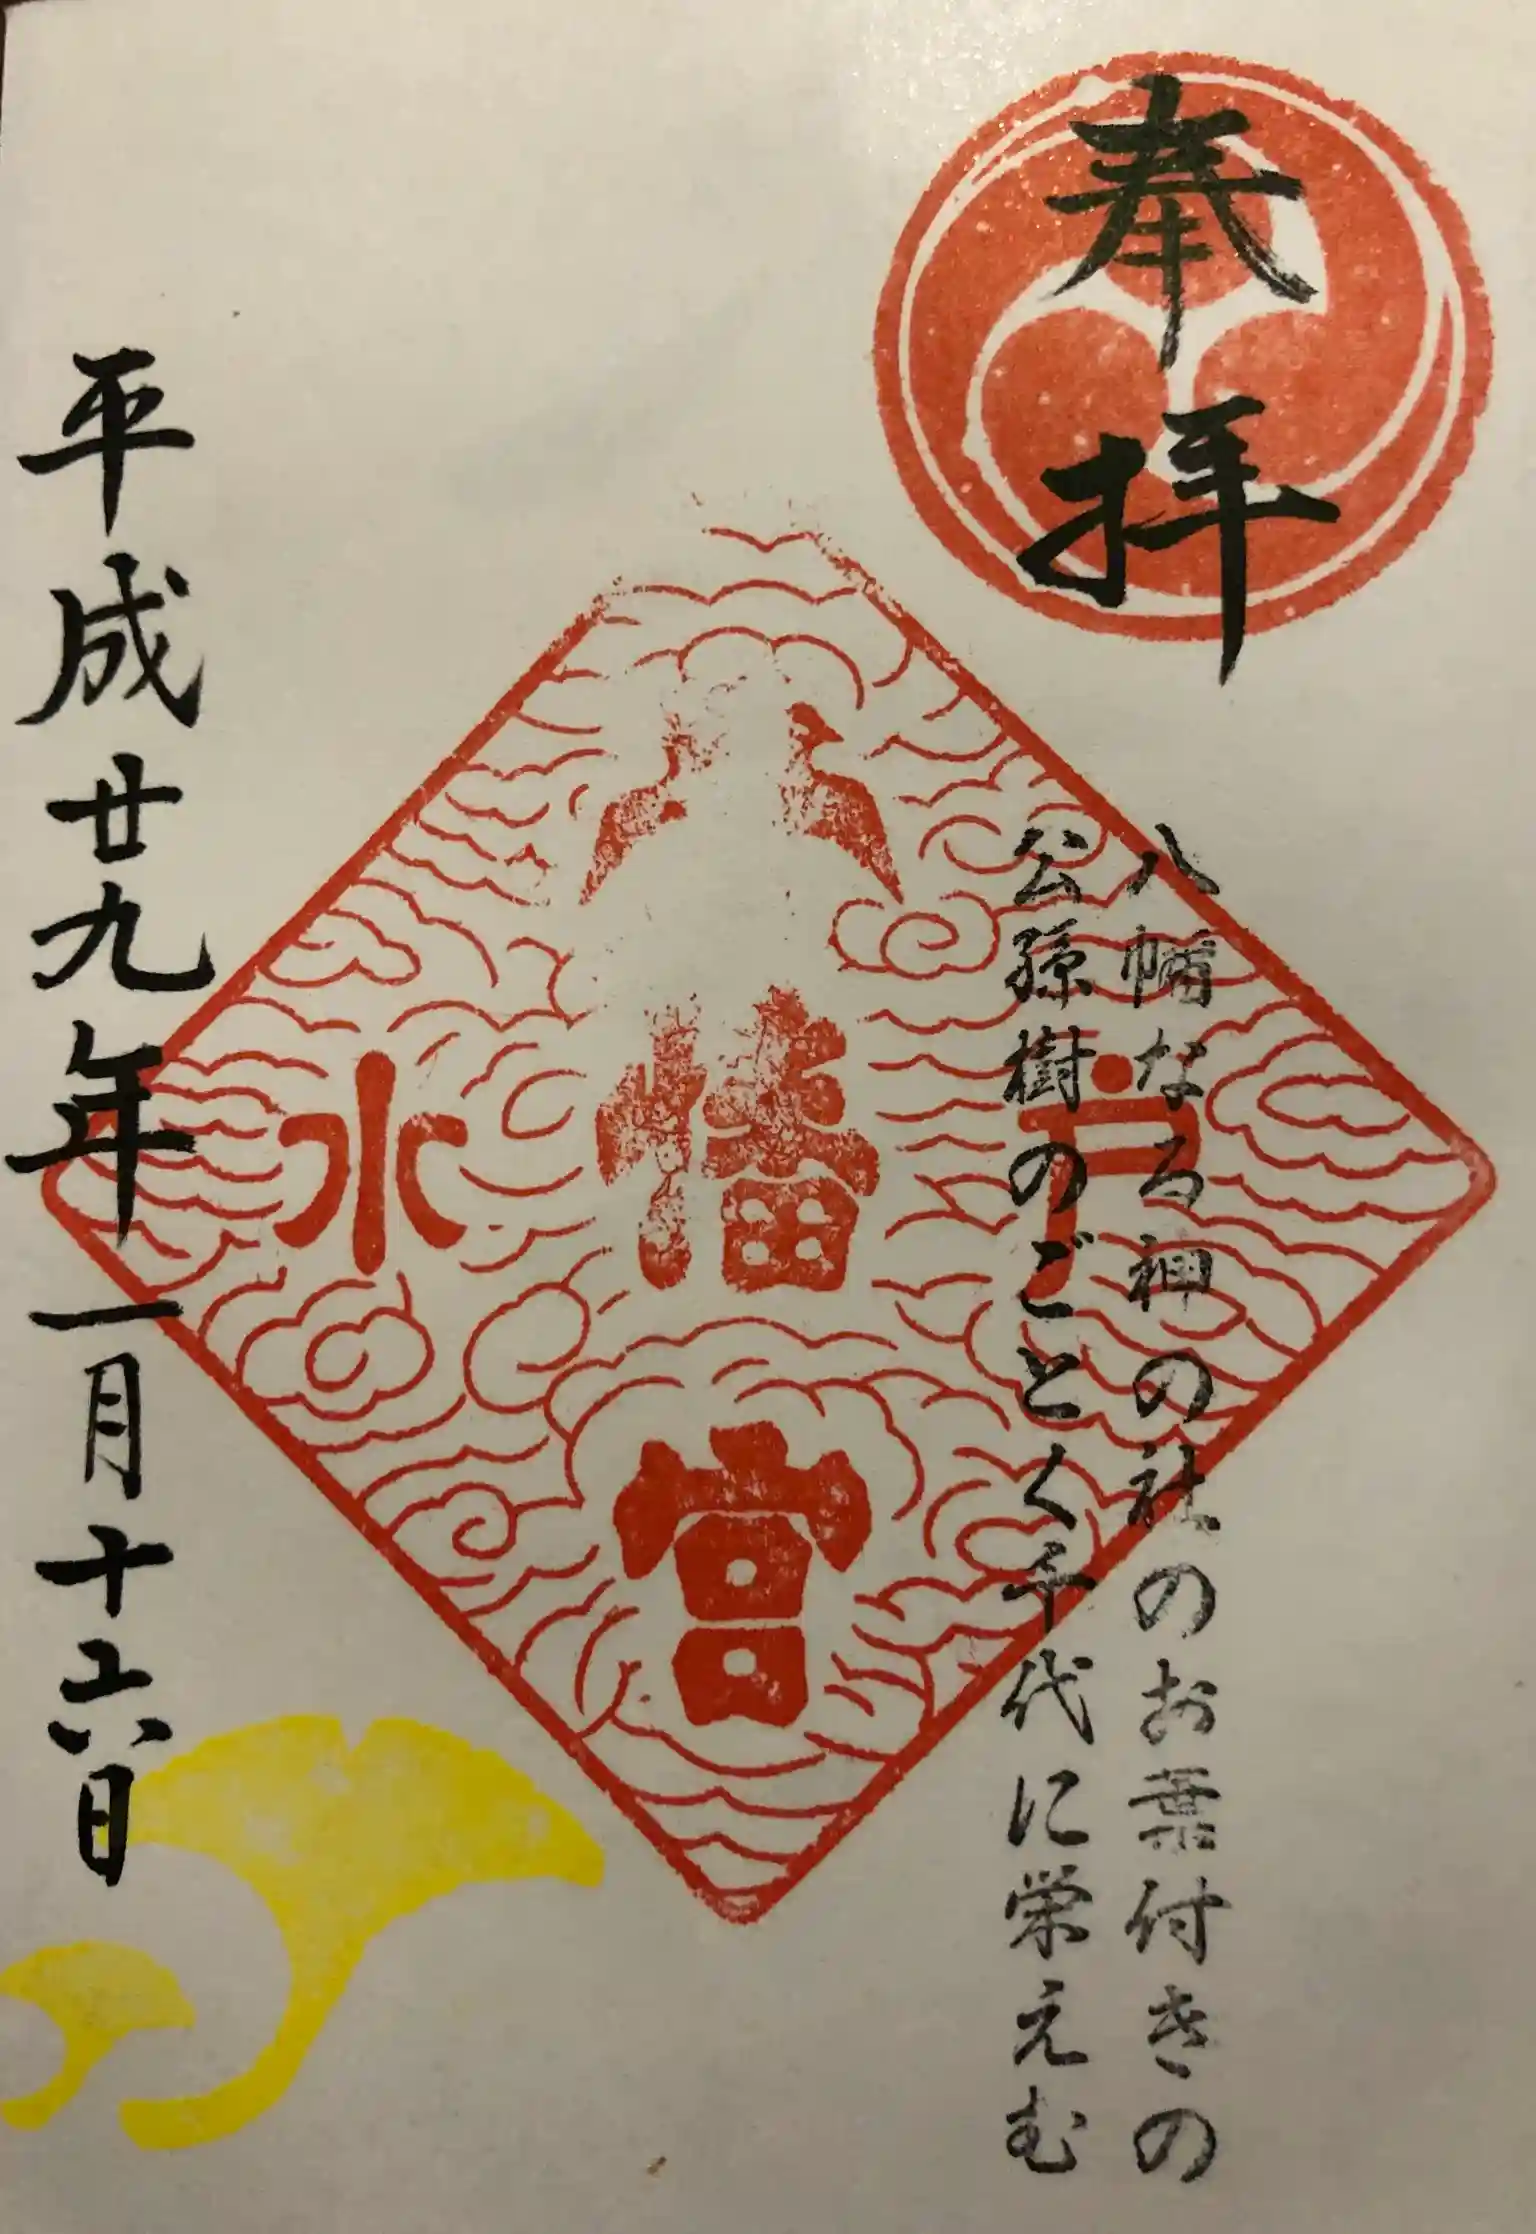 奉拝
八幡なる神の社のお葉付きの
公孫樹のごとく千代に栄えむ
水戸
幡宮
平成廿九年一月十六日